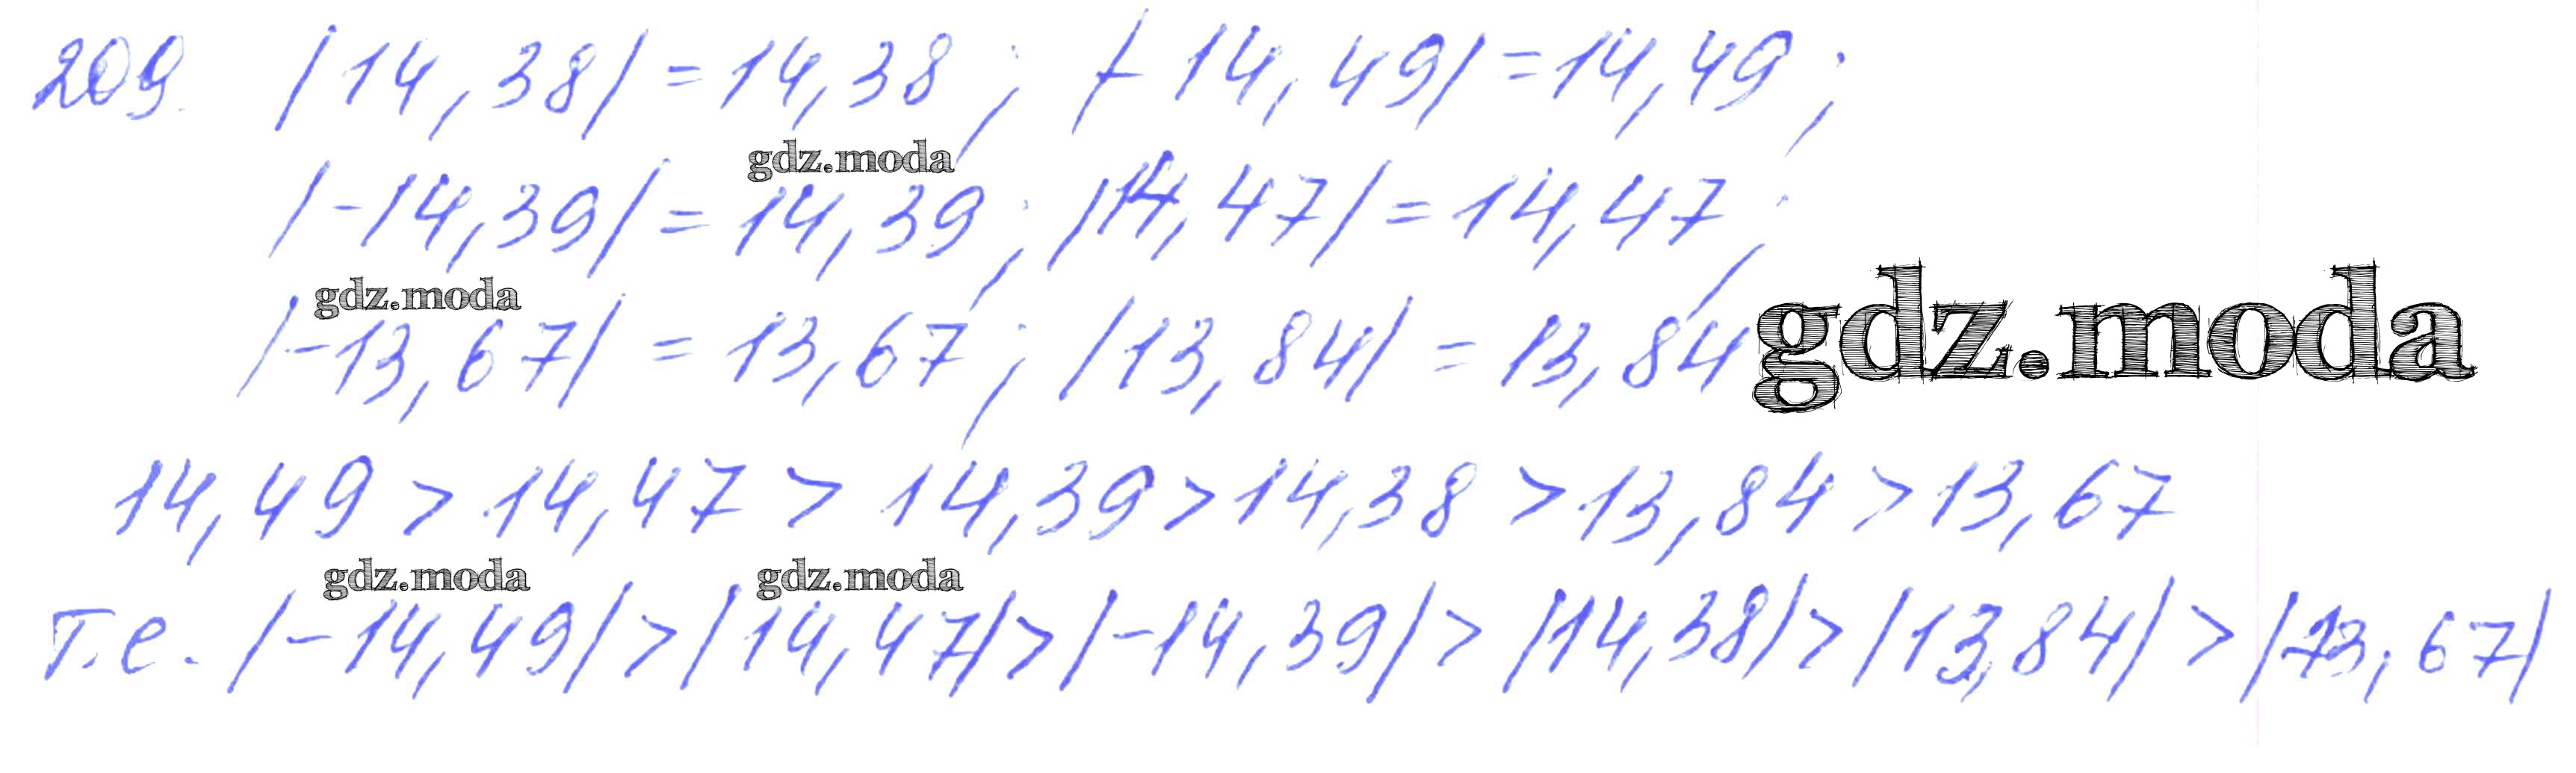 209. |14,38| = 14,38; |-14,49| = 14,49;
gdz.moda
|-14,39| = 14,39; |14,47| = 14,47;
gdz.moda
gdz.moda
|-13,67| = 13,67; |13,84| = 13,84
14,49 > 14,47 > 14,39 > 14,38 > 13,84 > 13,67
gdz.moda gdz.moda
т.е. |-14,49| > |14,47| > |-14,39| > |14,38| > |13,84| > |-13,67|